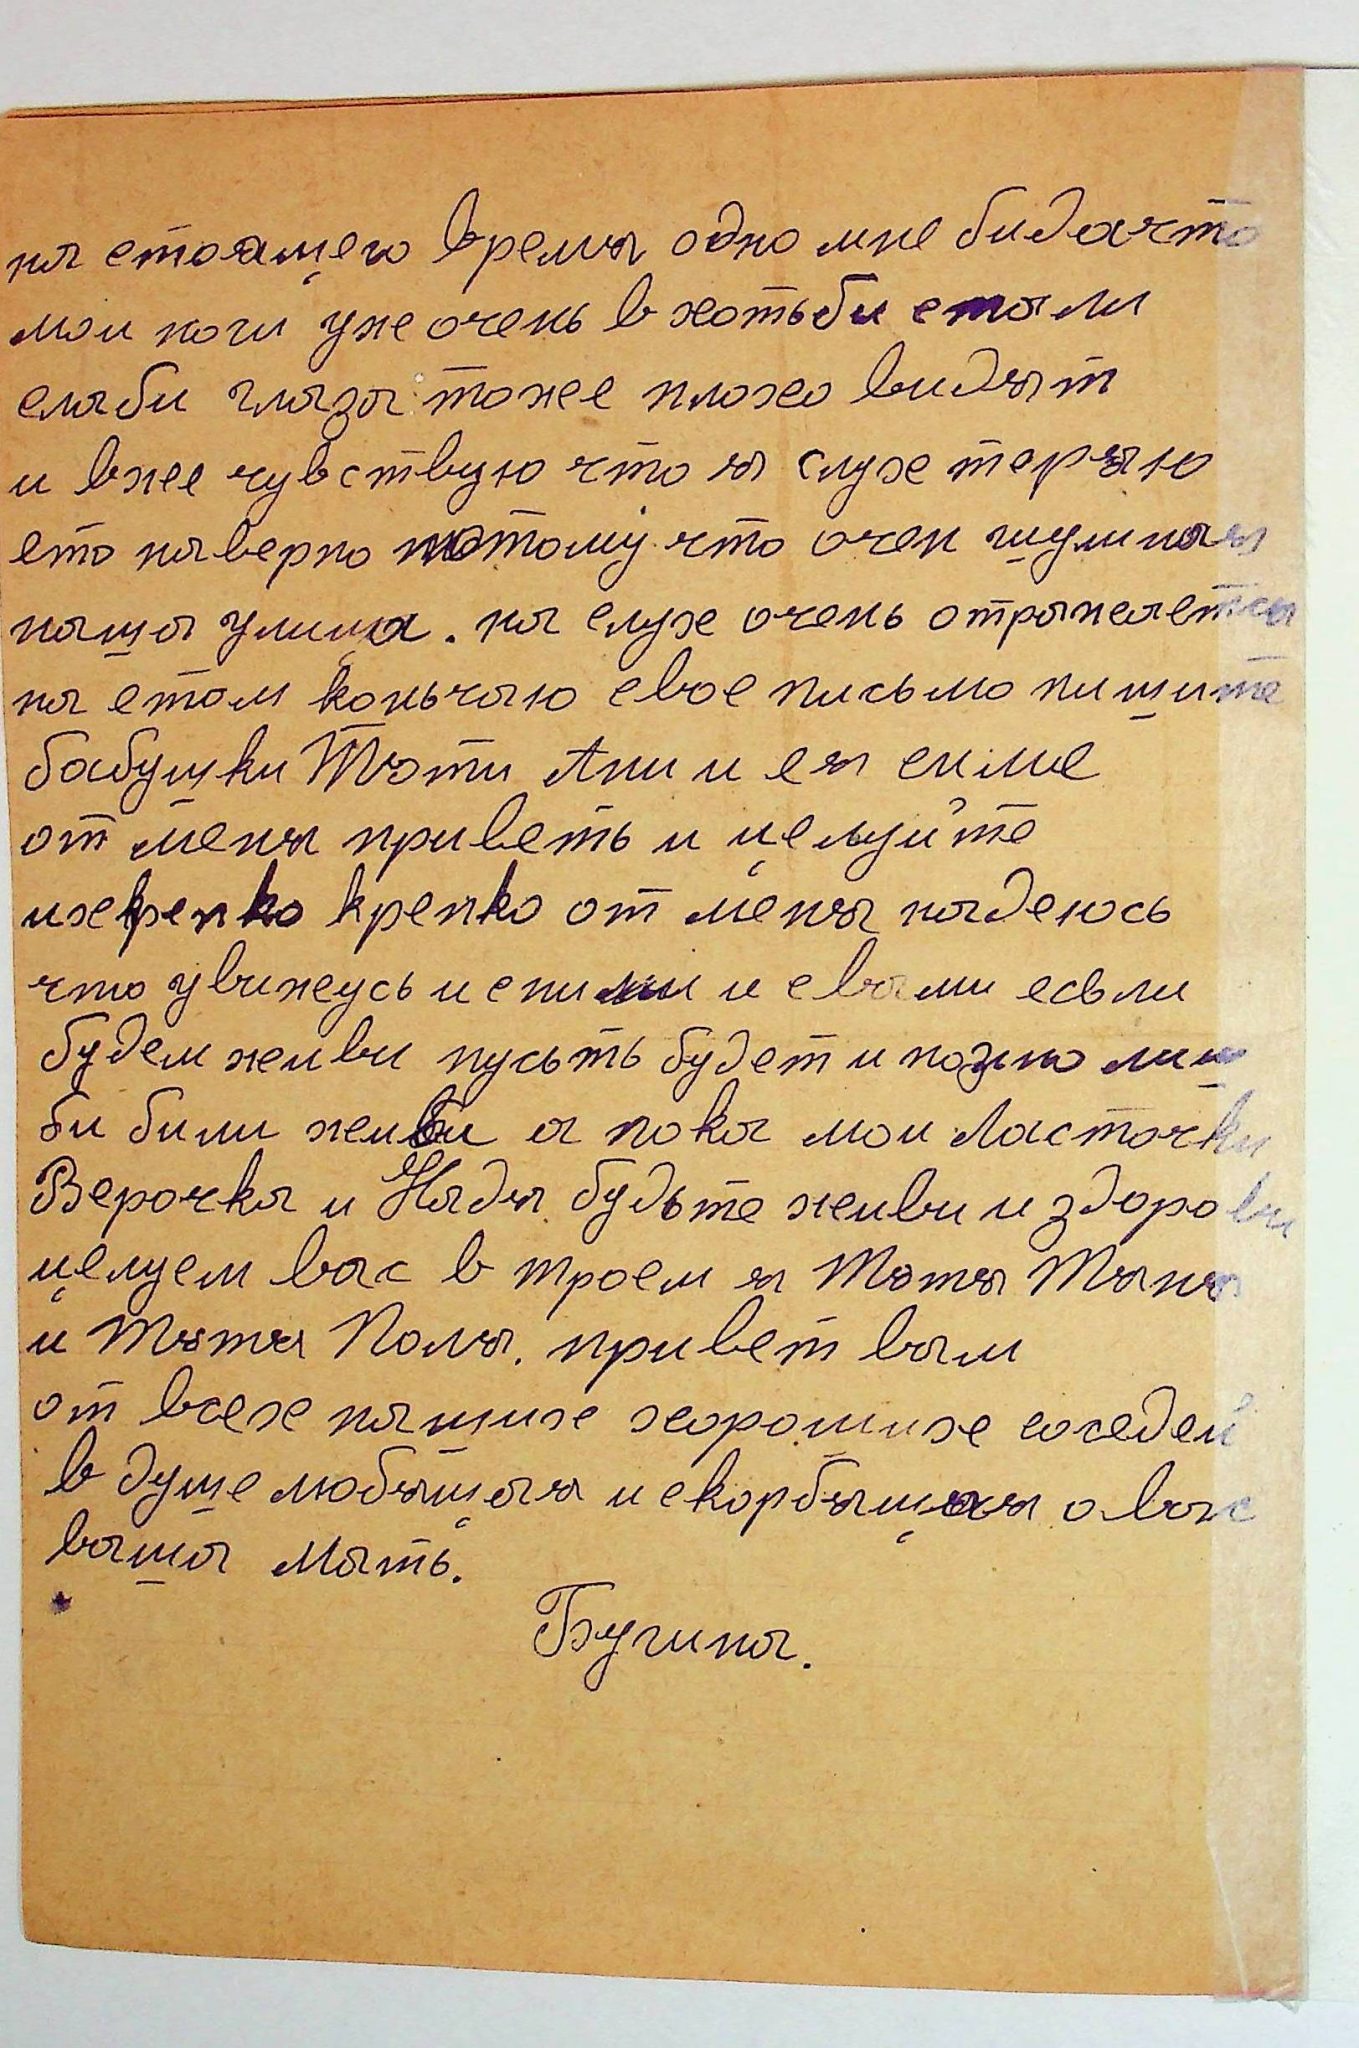 настоящего время одно мне бида что
мои ноги уже очень в хотьби стали
слаби глаза тоже плохо видят
и вже чувствую что я слух теряю
ето наверно потому что очен шумная
наша улица. на слух очень отражается
на етом коньчаю свое письмо пишите
бабушки Тюти Ани и ея симе
от меня приветь и целуйте
их крепко крепко от меня надеюсь
что увижусь и сними и свами есьли
будем живи пусьть будет и позно лиш
би били живи а пока мои Ласточки
Верочка и Надя будьте живи и здорови
целуем вас в троем я Тютя Таня
и Тютя Поля. привет вам
от всех наших хороших соседей
в душе любящая и скорбящая о вас
ваша Мать.
Бугина.